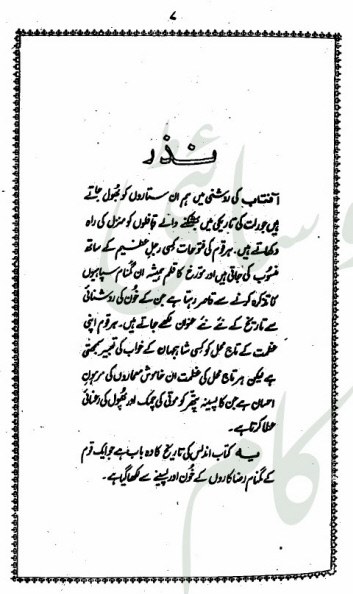 ۷
نذر
آفتاب کی روشنی میں ہم ان ستاروں کو بھول جاتے
ہیں جو رات کی تاریکی میں بھٹکنے والے قافلوں کو منزل کی راہ
دکھاتے ہیں۔ ہر قوم کی فتوحات کسی رجلِ عظیم کے ساتھ
منسوب کی جاتی ہیں اور مؤرخ کا قلم ہمیشہ ان گمنام سپاہیوں
کا تذکرہ کرنے سے قاصر رہتا ہے جن کے خون کی روشنائی
سے تاریخ کے نئے نئے عنوان لکھے جاتے ہیں۔ ہر قوم اپنی
عظمت کے تاج محل کو کسی شاہجہان کے خواب کی تعبیر سمجھتی
ہے لیکن ہر تاج محل کی عظمت ان خاموش معماروں کی مرہونِ
احسان ہے جن کا پسینہ پتھر کو موتی کی چمک اور پھول کی رعنائی
عطا کرتا ہے۔
یہ کتاب اندلس کی تاریخ کا وہ باب ہے جو ایک قوم
کے گمنام رضاکاروں کے خون اور پسینے سے لکھا گیا ہے۔